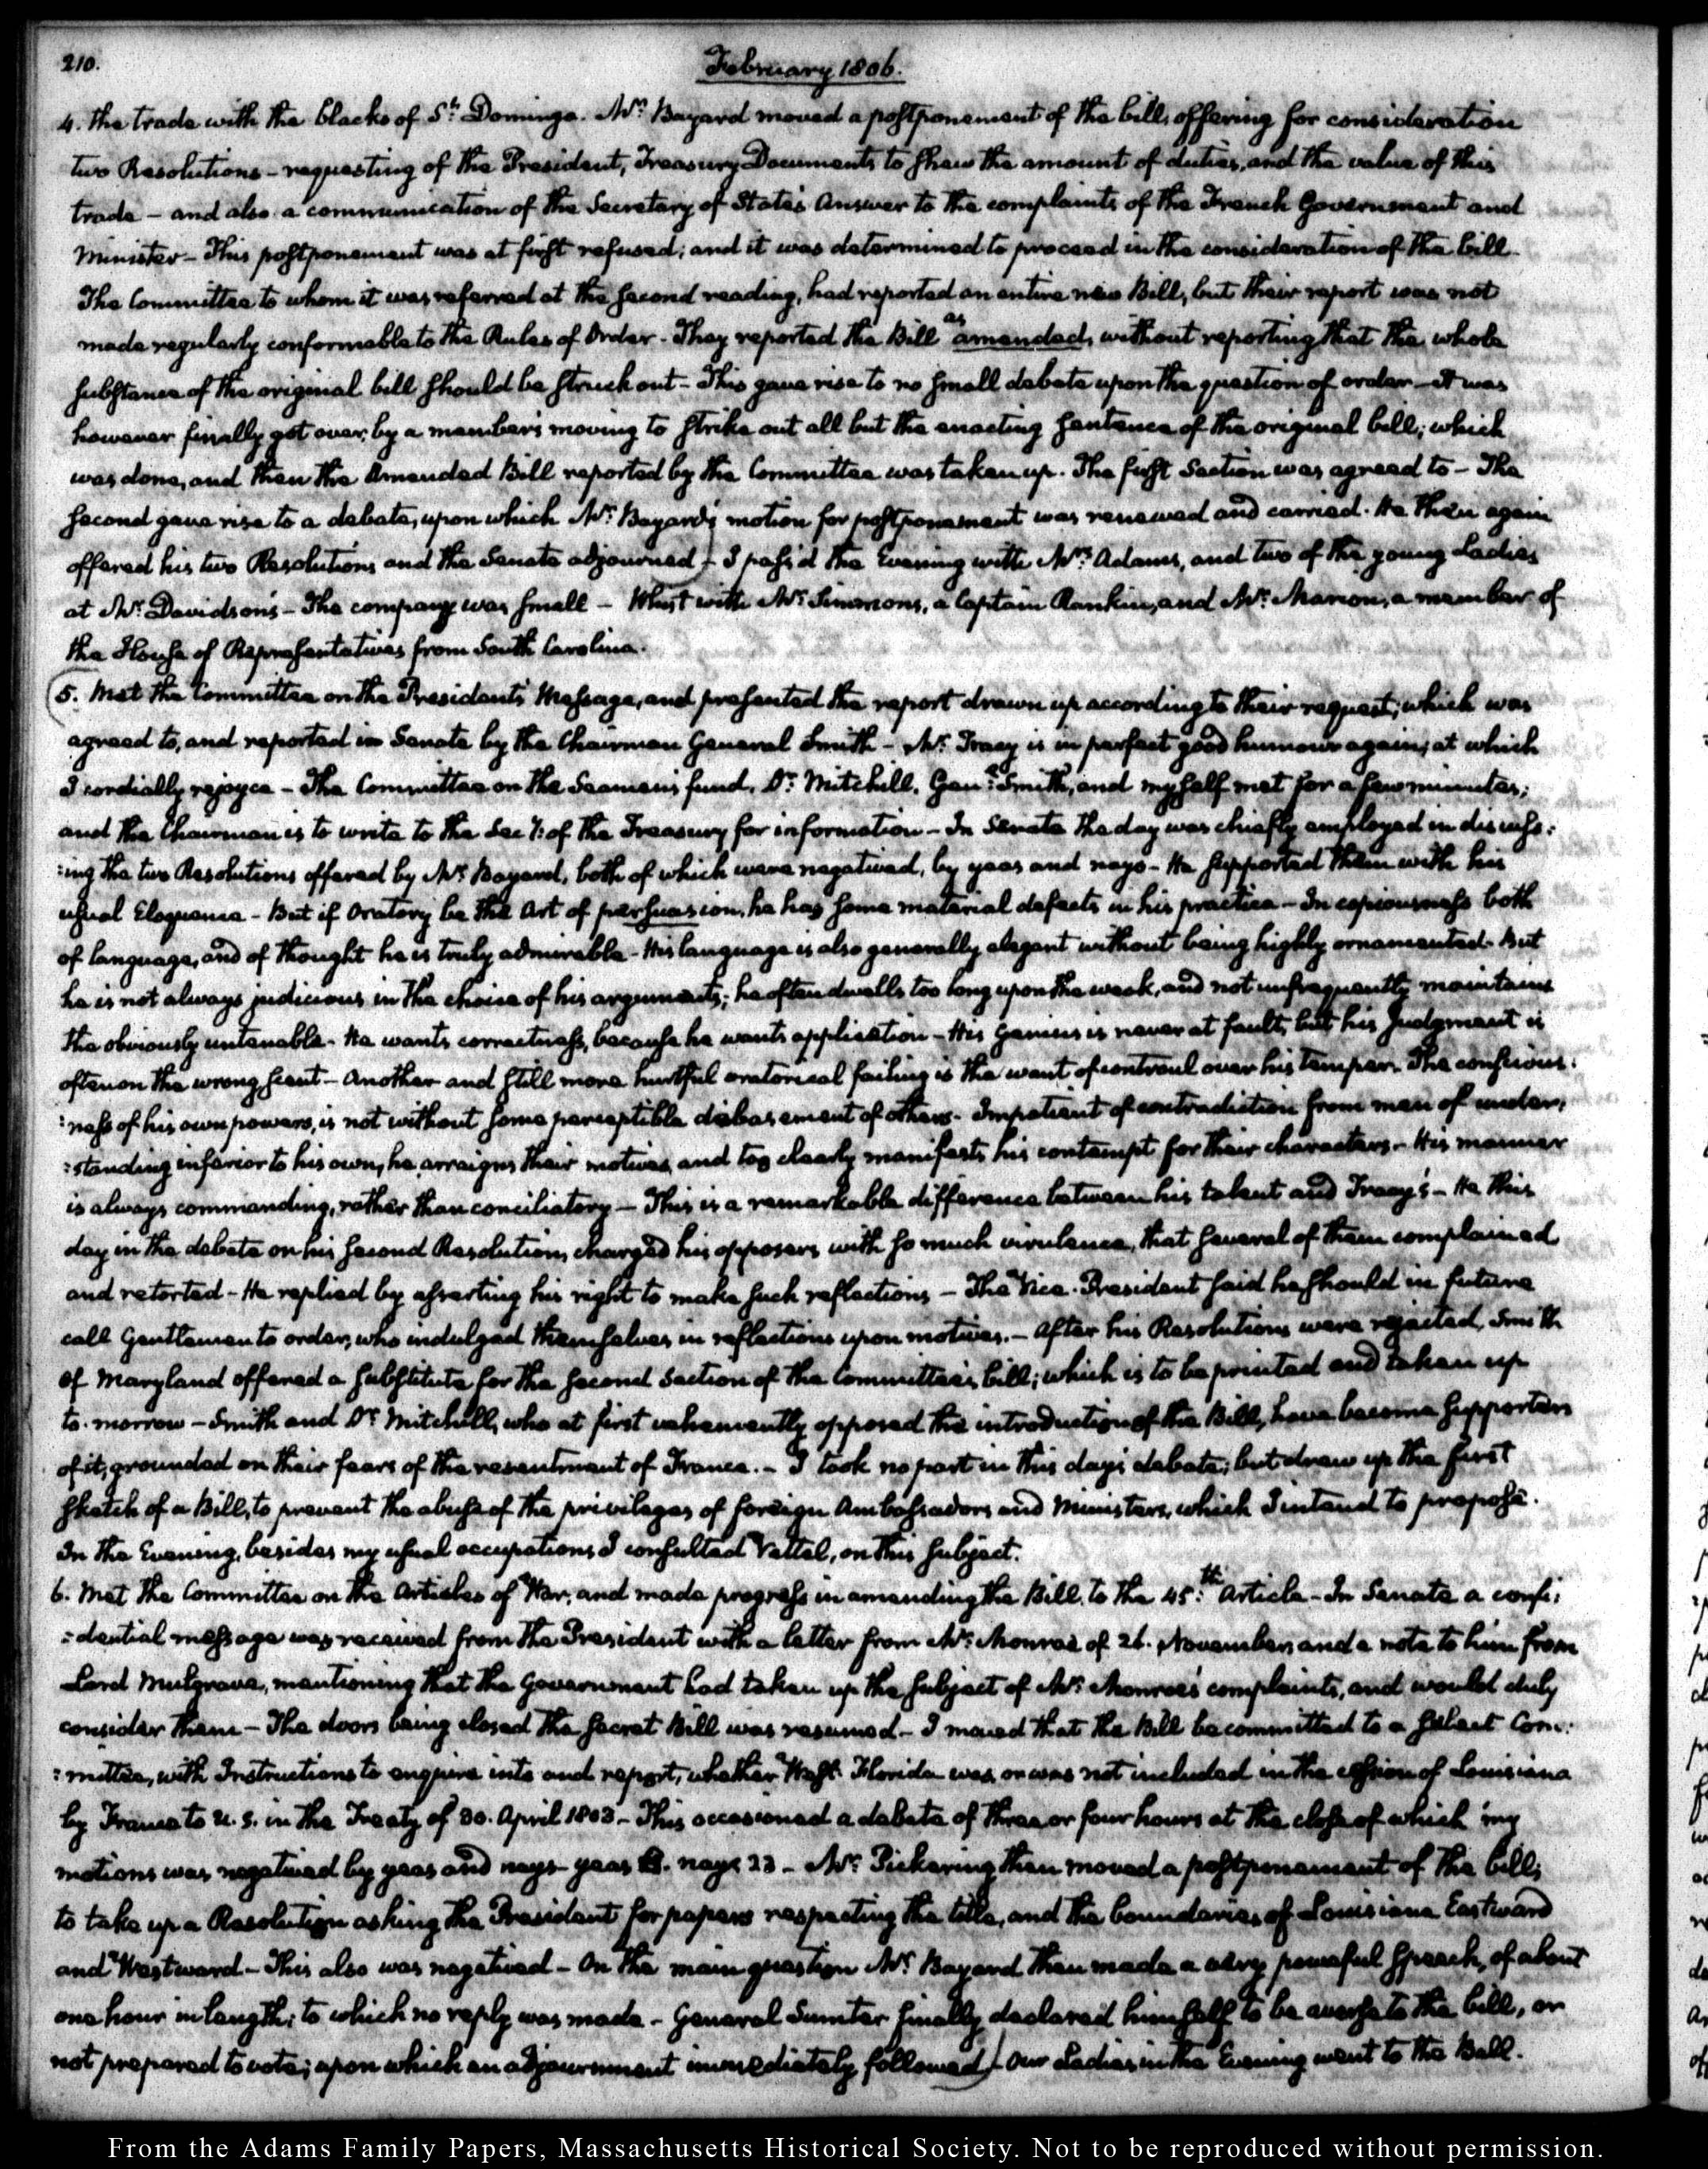 210.
February 1806.
4. the trade with the blacks of St. Domingo. Mr. Bayard moved a postponement of the bill, offering for consideration
two Resolutions – requesting of the President, Treasury Documents to shew the amount of duties, and the value of this
trade – and also a communication of the Secretary of State's Answer to the complaints of the French Government and
Minister – This postponement was at first refused; and it was determined to proceed in the consideration of the bill.
The Committee to whom it was referred at the second reading, had reported an entire new Bill, but their report was not
made regularly conformable to the Rules of Order – They reported the Bill as amended, without reporting that the whole
substance of the original bill should be struck out – This gave rise to no small debate upon the question of order – it was
however finally got over, by a member's moving to strike out all but the enacting sentence of the original bill; which
was done, and then the Amended Bill reported by the Committee was taken up. The first Section was agreed to – The
second gave rise to a debate, upon which Mr. Bayard's motion for postponement was renewed and carried. He then again
offered his two Resolutions and the Senate adjourned – I pass'd the Evening with Mrs. Adams, and two of the young Ladies
at Mr. Davidson's – The company was small – Whist with Mr. Simmons, a Captain Rankin, and Mr. Marion, a member of
the House of Representatives from South Carolina.
5. Met the Committee on the President's Message, and presented the report drawn up according to their request; which was
agreed to, and reported in Senate by the Chairman General Smith – Mr. Tracy is in perfect good humour again; at which
I cordially rejoyce – The Committee on the Seamen's fund, Dr. Mitchill, Genl. Smith, and myself met for a few minutes;
and the Chairman is to write to the Secy. of the Treasury for information – In Senate the day was chiefly employed in discuss:
:ing the two Resolutions offered by Mr. Bayard, both of which were negatived, by yeas and nays – He supported them with his
usual Eloquence – But if Oratory be the Art of persuasion, he has some material defects in his practice – In copiousness both
of language, and of thought he is truly admirable – His language is also generally elegant without being highly ornamented. But
he is not always judicious in the choice of his arguments; he often dwells too long upon the weak, and not unfrequently maintains
the obviously untenable. He wants correctness, because he wants application – His Genius is never at fault, but his Judgment is
often on the wrong scent – Another and still more hurtful oratorical failing is the want of controul over his temper. The conscious:
:ness of his own powers, is not without some perceptible debasement of others. Impatient of contradiction from men of under:
:standing inferior to his own, he arraigns their motives and too clearly manifests his contempt for their characters. His manner
is always commanding, rather than conciliatory – This is a remarkable difference between his talent and Tracy's – He this
day in the debate on his second Resolution, charged his opposers with so much virulence, that several of them complained
and retorted – He replied by asserting his right to make such reflections – The Vice-President said he should in future
call Gentlemen to order, who indulged themselves in reflections upon motives. – After his Resolutions were rejected, Smith
of Maryland offered a substitute for the second Section of the Committee's bill; which is to be printed and taken up
to-morrow – Smith and Dr. Mitchill, who at first vehemently opposed the introduction of the Bill, have become supporters
of it, grounded on their fears of the resentment of France. – I took no part in this day's debate; but drew up the first
sketch of a Bill, to prevent the abuse of the privileges of foreign Ambassadors and Ministers, which I intend to propose.
In the Evening, besides my usual occupations I consulted Vattel, on this subject.
6. Met the Committee on the Articles of War, and made progress in amending the Bill, to the 45th. Article – In Senate a confi:
:dential message was received from the President with a letter from Mr. Monroe of 26. November, and a note to him from
Lord Mulgrave, mentioning that the Government had taken up the subject of Mr. Monroe's complaints, and would duly
consider them – The doors being closed the secret Bill was resumed – I moved that the Bill be committed to a select Com:
:mittee, with Instructions to enquire into and report, whether West Florida was or was not included in the cession of Louisiana
by France to U.S. in the Treaty of 30. April 1803 – This occasioned a debate of three or four hours at the close of which my
motions was negatived by yeas and nays – yeas nays 23 – Mr. Pickering then moved a postponement of the bill;
to take up a Resolution asking the President for papers respecting the title, and the boundaries of Louisiana Eastward
and Westward – This also was negatived – On the main question Mr. Bayard then made a very powerful speech, of about
one hour in length; to which no reply was made – General Sumter finally declared himself to be averse to the bill, or
not prepared to vote; upon which an adjournment immediately followed. Our Ladies in the Evening went to the Ball.
From the Adams Family Papers, Massachusetts Historical Society. Not to be reproduced without permission.